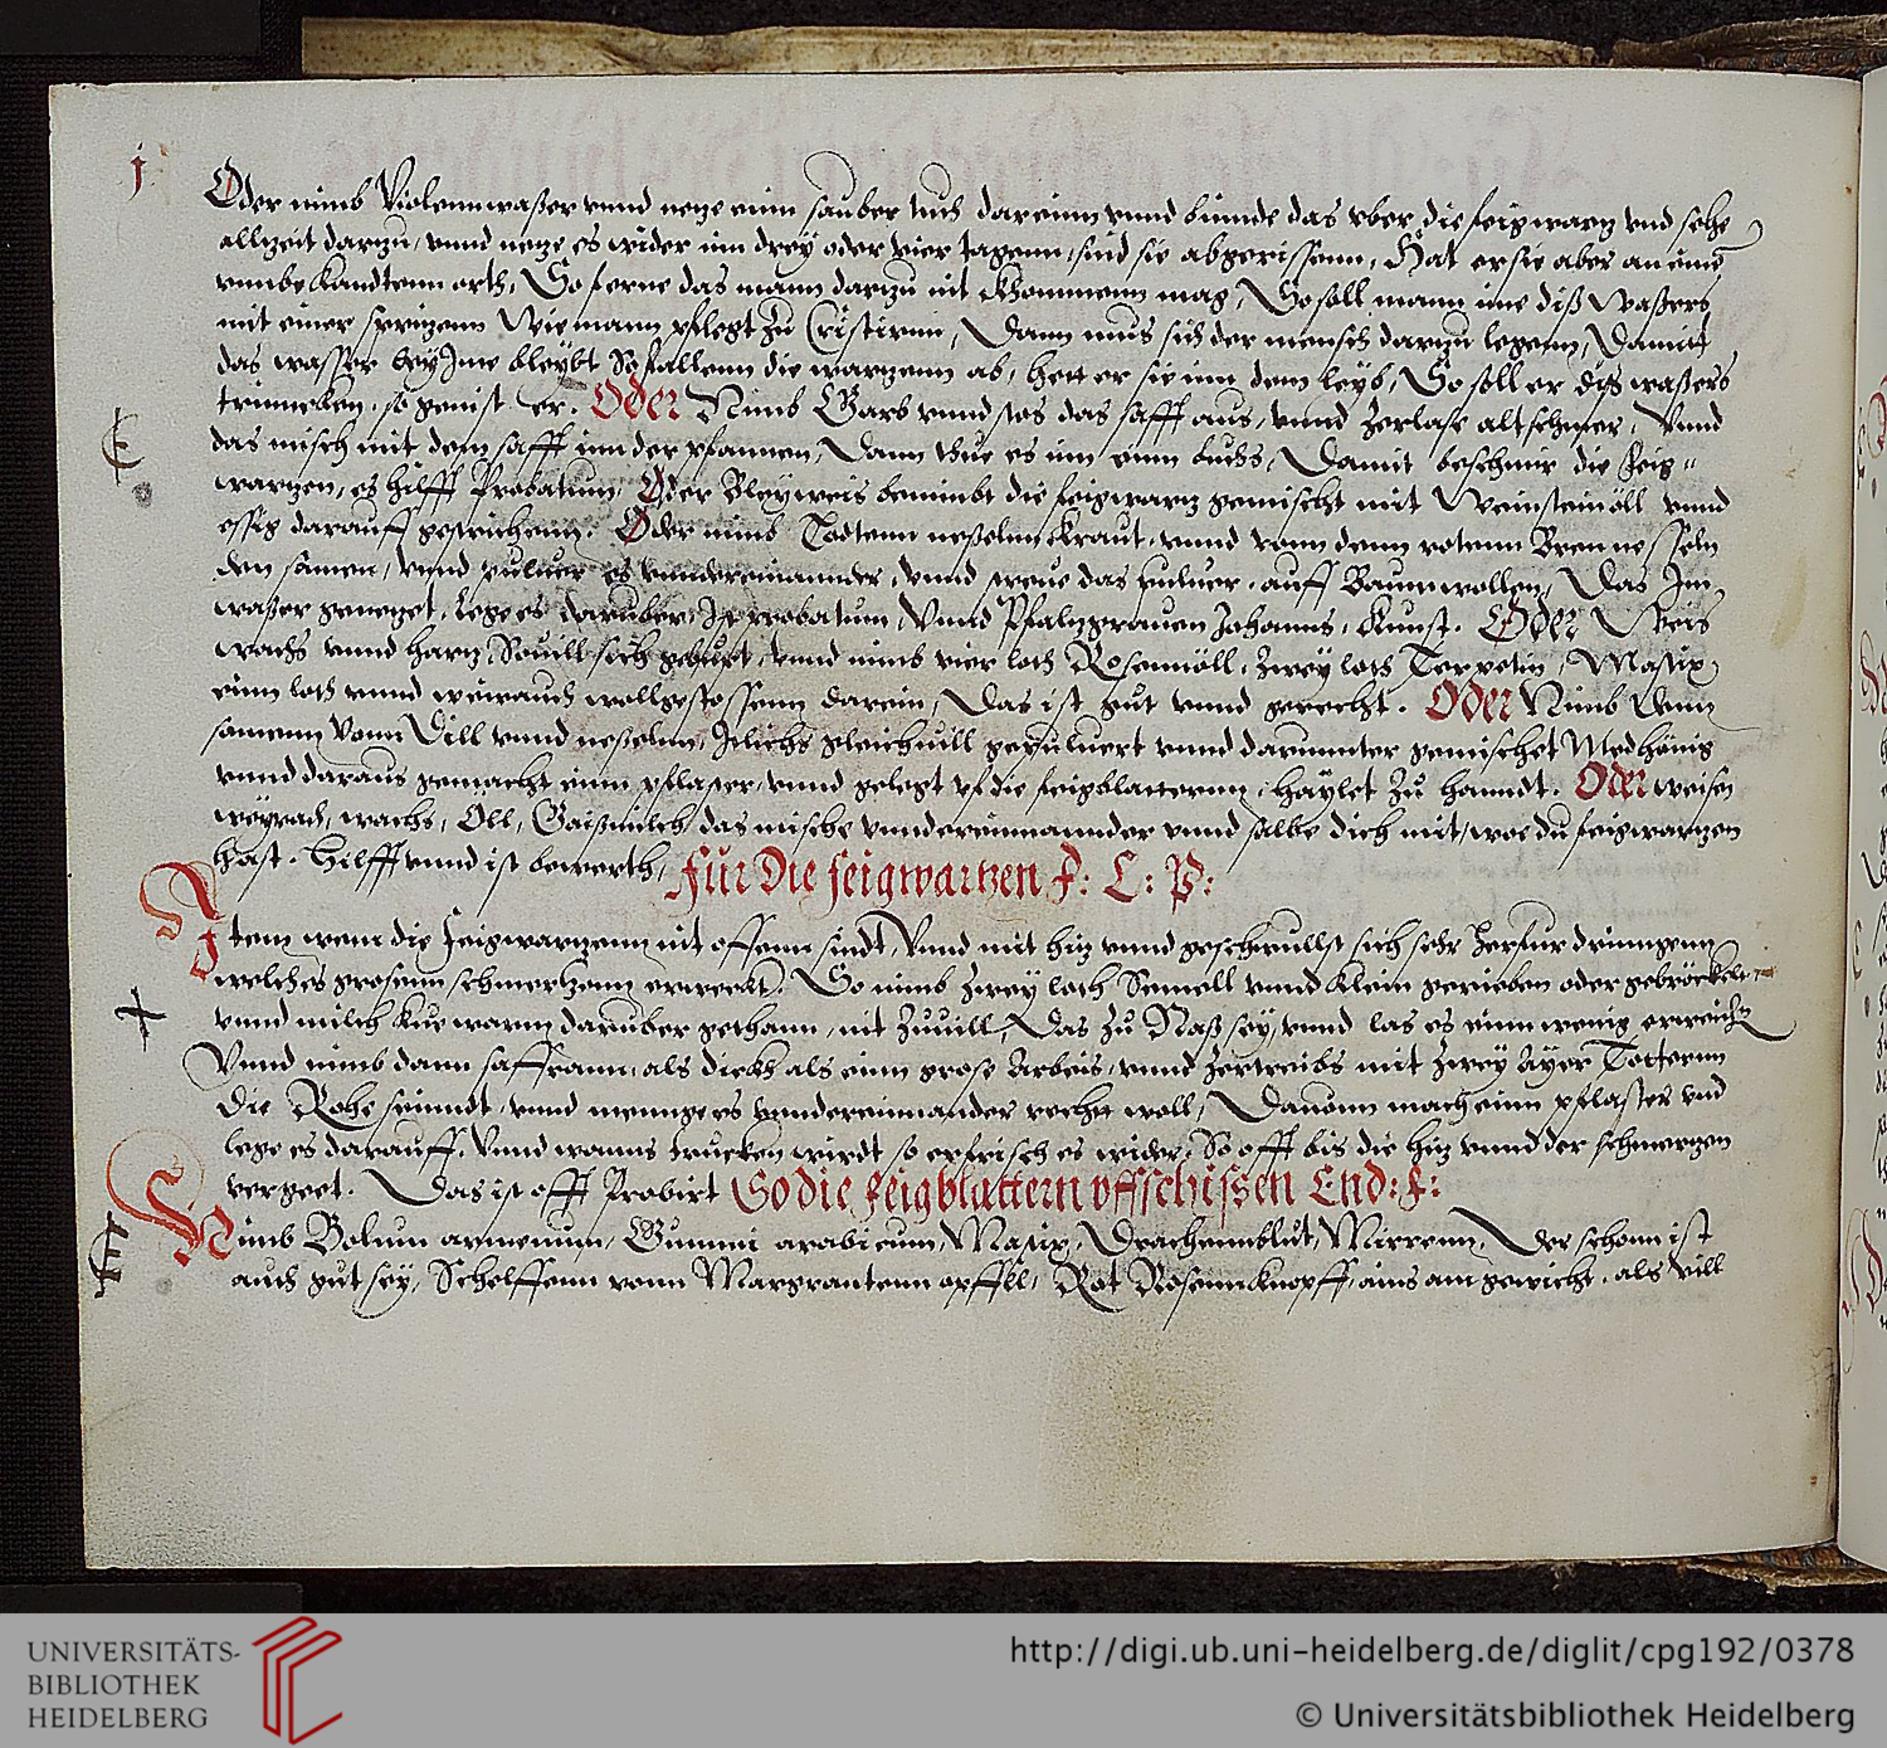 j
Oder nimb Violennwaßer vnnd netze einn sauber tuch dareinn vnnd binnde das vber die feigwartz vnd sehe
allzeit dartzu, vnnd netze es wider inn drey oder vier tagenn, sind sie abgerissenn, Hat er sie aber an einē
vnnbekandtenn orth, So ferne das mann dartzu nit khommenn mag, So soll mann ime diß waßers
mit einer spritzenn Wie mann pflegt zu Cristirnn, Dann mus sich der mensch dartzu legenn, Damit
das wasser bey Ime bleybt So fallenn die wartzenn ab, hett er sie inn dem leyb, So soll er diß waßers
trinncken, so genist er. Oder Nimb Garb vnnd stos das safft aus, vnnd zerlase alt schmer, Vnnd
das misch mit dem safft inn der pfannen, Dann thue es inn einn buchs, Damit beschmir die Feig"
wartzen, es hilfft Probatum, Oder Bleyweis benimbt die feigwartz gemischt mit Weinsteinöll vnnd
essig darauff gestrichenn. Oder nimb Todtenn neßelnn Kraut, vnnd vonn denn rotenn Brennesseln
den samen, vnnd puluer es vnndereinannder, vnnd strewe das puluer, auff Baumwollen, Das Im
waßer genetzet, Lege es daruber, Ist probatum, Vnnd Pfaltzgrauen Johanns, Kunst. Oder Weis
wachs vnnd hartz, Souill sich geburt, vnnd nimb vier loth Rosennöll, zwey loth Terpetin, Mastix
einn loth vnnd weirauch wollgestossenn darein, Das ist gut vnnd gerecht. Oder Nimb Denn
samenn Vonn Dill vnnd neßelnn, Itlichs gleichuill gepuluert vnnd darunnter gemischet Medhönig
vnnd daraus gemacht einn pflaster, vnnd gelegt vf die feigblatternn, Haylet zu hanndt. Oder weisen
weyrach, wachs, Oll, Gaißmilch das mische vnndereinnannder vnnd salbe dich mit, woe du feigwartzen
hast. Hilfft vnnd ist bewerth, Fur Die feigwartzen F: C: P:
Jtem wenn die Feigwartzenn nit offenn sindt, Vnnd mit hitz vnnd geschwullst sich sehr herfur drinngenn
welches grosenn schmertzenn erweckt. So nimb zwey loth Semell vnnd Klein gerieben oder gebröckelt
vnnd milch kue warm daruber gethann, nit zuuill, Das zu Naß sey, vnnd las es einn wenig erweichn
Vnnd nimb dann saffrann, als dickh als einn grose Arbeis, vnnd zertreibs mit zwey Ayer Totternn
Die Rohe seinndt, vnnd mennge es vnndereinnander recht woll, Dauonn mach einn pflaster vnd
lege es darauff, Vnnd wanns trucken wirdt so erfrisch es wider, So offt bis die hitz vnnd der schmertzen
vergeet. Das ist offt Probirt So die feigblattern vffschissen End: f:
Nimb Bolum armenum, Gummi arabicum, Mastix, Drachennblut, Mirrenn, Der schonn ist
auch gut sey, Schelffenn vonn Margrantenn opffel, Rot Rosennknopff, ains am gewicht, als vill
UNIVERSITÄTS-
BIBLIOTHEK
HEIDELBERG
http://digi.ub.uni-heidelberg.de/diglit/cpg192/0378
© Universitätsbibliothek Heidelberg